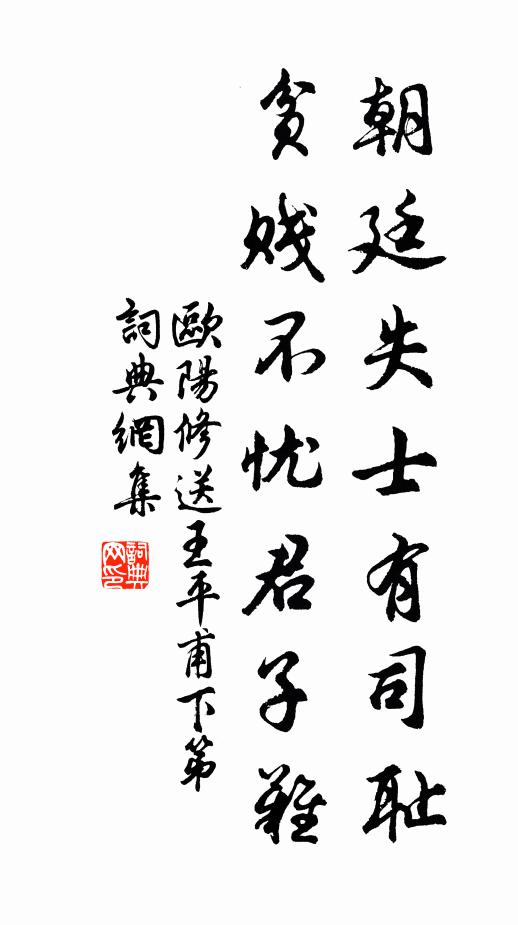 朝廷失士有司耻
贫贱不忧君子難
歐陽修送王平甫下第
詞典網集
詞典网印